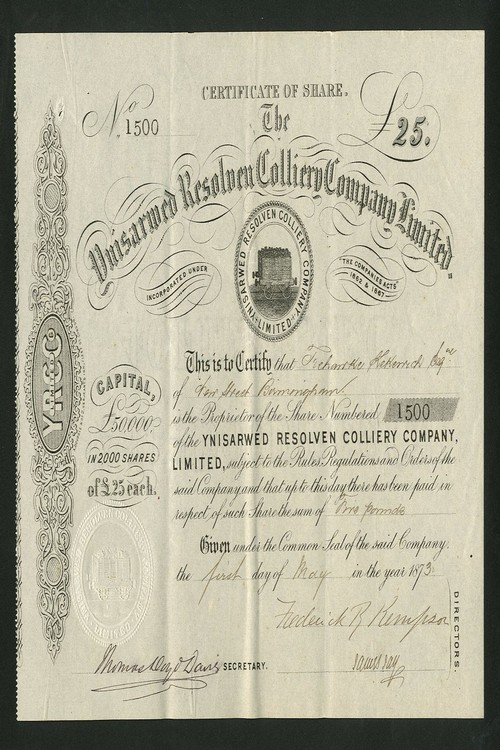 CERTIFICATE OF SHARE.
No. 1500
£25.
The
Ynisarwed Resolven Colliery Company Limited.
INCORPORATED UNDER
"THE COMPANIES ACTS"
1862 & 1867
YNISARWED RESOLVEN COLLIERY COMPANY
LIMITED
This is to Certify that Esqre
of New Street Birmingham
is the Proprietor of the Share Numbered 1500
of the YNISARWED RESOLVEN COLLIERY COMPANY,
LIMITED, subject to the Rules, Regulations and Orders of the
said Company, and that up to this day there has been paid in
respect of such Share the sum of pounds
Given under the Common Seal of the said Company.
the first day of May in the year 1873.
CAPITAL,
£50000,
IN 2000 SHARES
of £25 each.
Frederick R Kempson
DIRECTORS.
Thomas Davis SECRETARY.
James Ray